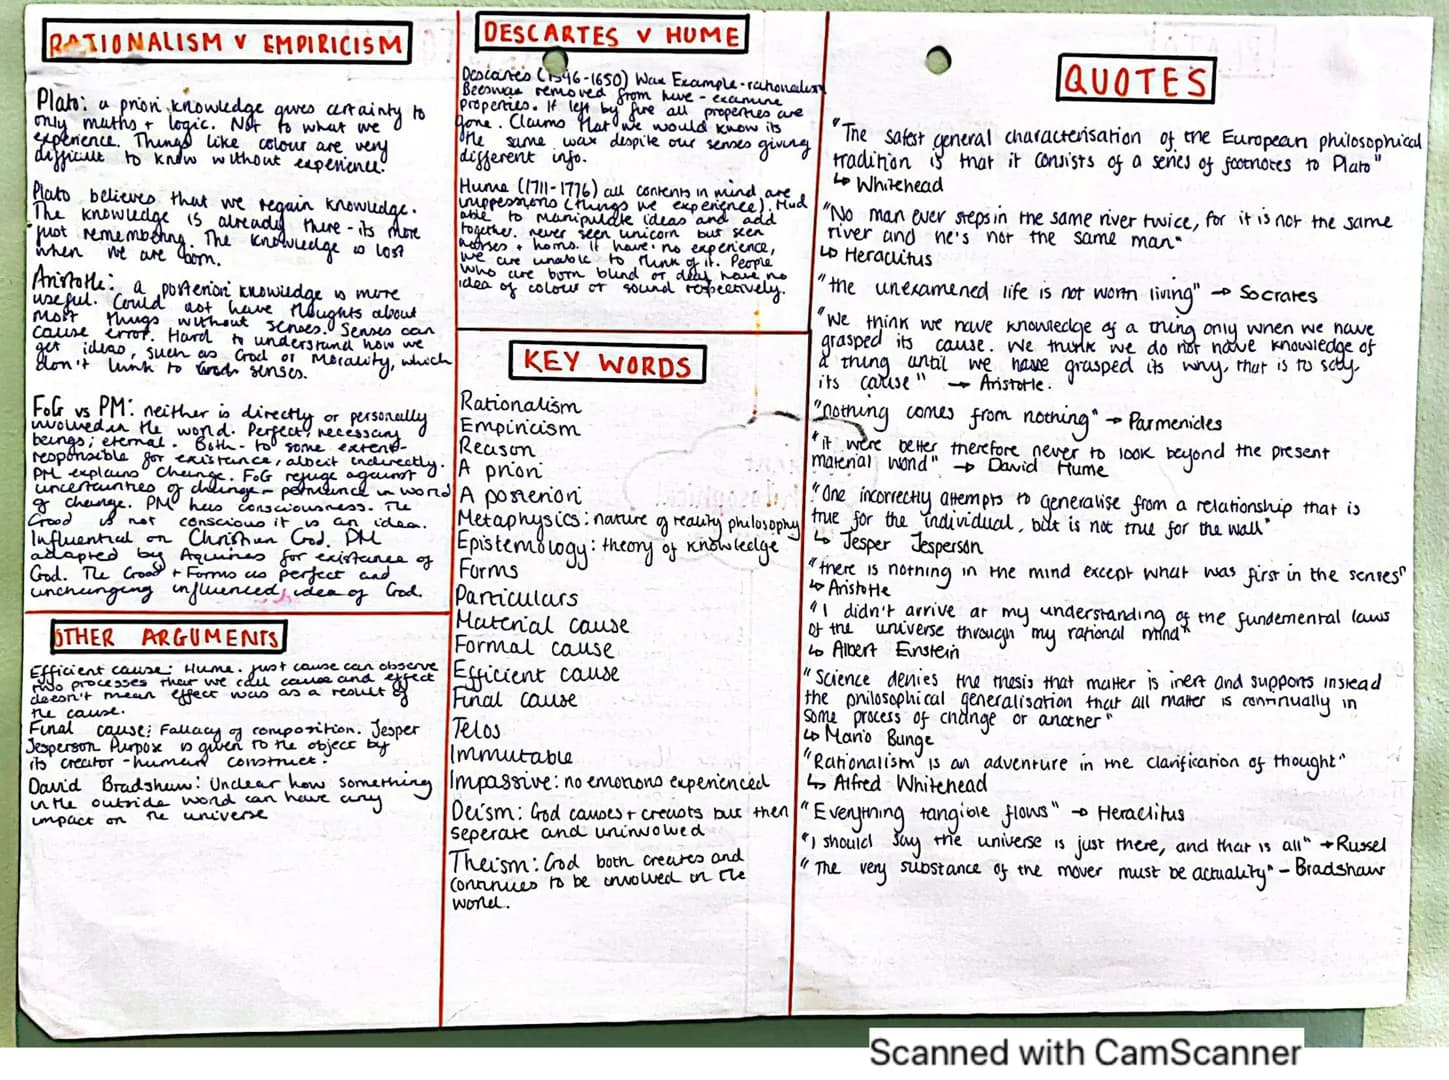 RATIONALISM V EMPIRICISM
Plato: a priori knowledge gives certainty to
only maths + logic. Not to what we
experience. Things like colour are very
difficult to know without experience.
Plato believes that we regain knowledge.
The knowledge is already there - its more
just remembering. The knowledge is lost
when we are born.
Aristotle: a posteriori knowledge is more
useful. Could not have thoughts about
most things without senses. Senses can
cause error. Hard to understand how we
get ideas, such as God or Morality, which
don't link to senses.
FoG vs PM: neither is directly or personally
involved in the world. Perfect; necessary
beings; eternal. Both - to some extent -
responsible for existence, albeit indirectly.
PM explains change. FoG refuge against
uncertainties of change - permanence in world
of change. PM has consciousness. The
Good is not conscious it is an idea.
Influential on Christian God. PM
adapted by Aquinas for existence of
God. The Good + Forms as perfect and
unchanging influenced idea of God.
OTHER ARGUMENTS
Efficient cause: Hume. Just cause can observe
two processes that we call cause and effect
doesn't mean effect was as a result of
the cause.
Final cause: Fallacy of composition. Jesper
Jesperson Purpose is given to the object by
its creator - human construct.
David Bradshaw: Unclear how something
in the outside world can have any
impact on the universe
DESCARTES V HUME
Descartes (1596-1650) Wax Example - rationalism
Beeswax removed from hive - examine
properties. If left by fire all properties are
gone. Claims that we would know its
the same wax despite our senses giving
different info.
Hume (1711-1776) all contents in mind are
impressions (things we experience). Mind
able to manipulate ideas and add
together. never seen unicorn but seen
horses + horns. If have no experience,
we are unable to think of it. People
who are born blind or deaf have no
idea of colour or sound respectively.
KEY WORDS
Rationalism
Empiricism
Reason
A priori
A posteriori
Metaphysics: nature of reality philosophy
Epistemology: theory of knowledge
Forms
Particulars
Material cause
Formal cause
Efficient cause
Final cause
Telos
Immutable
Impassive: no emotions experienced
Deism: God causes + creates but then
seperate and uninvolved
Theism: God both creates and
continues to be involved in the
world.
QUOTES
"The safest general characterisation of the European philosophical
tradition is that it consists of a series of footnotes to Plato"
↳ Whitehead
"No man ever steps in the same river twice, for it is not the same
river and he's not the same man"
↳ Heraclitus
"the unexamined life is not worth living" → Socrates
"We think we have knowledge of a thing only when we have
grasped its cause. We think we do not have knowledge of
a thing until we have grasped its why, that is to say,
its cause" → Aristotle.
"nothing comes from nothing" → Parmenides
"it were better therefore never to look beyond the present
material world" → David Hume
"One incorrectly attempts to generalise from a relationship that is
true for the individual, but is not true for the wall"
↳ Jesper Jesperson
"there is nothing in the mind except what was first in the senses"
↳ Aristotle
"I didn't arrive at my understanding of the fundemental laws
of the universe through my rational mind"
↳ Albert Einstein
"Science denies the thesis that matter is inert and supports instead
the philosophical generalisation that all matter is continually in
some process of change or another"
↳ Mario Bunge
"Rationalism is an adventure in the clarification of thought"
↳ Alfred Whitehead
"Everything tangible flows" → Heraclitus
"I should say the universe is just there, and that is all" → Russel
"The very substance of the mover must be actuality" - Bradshaw
Scanned with CamScanner